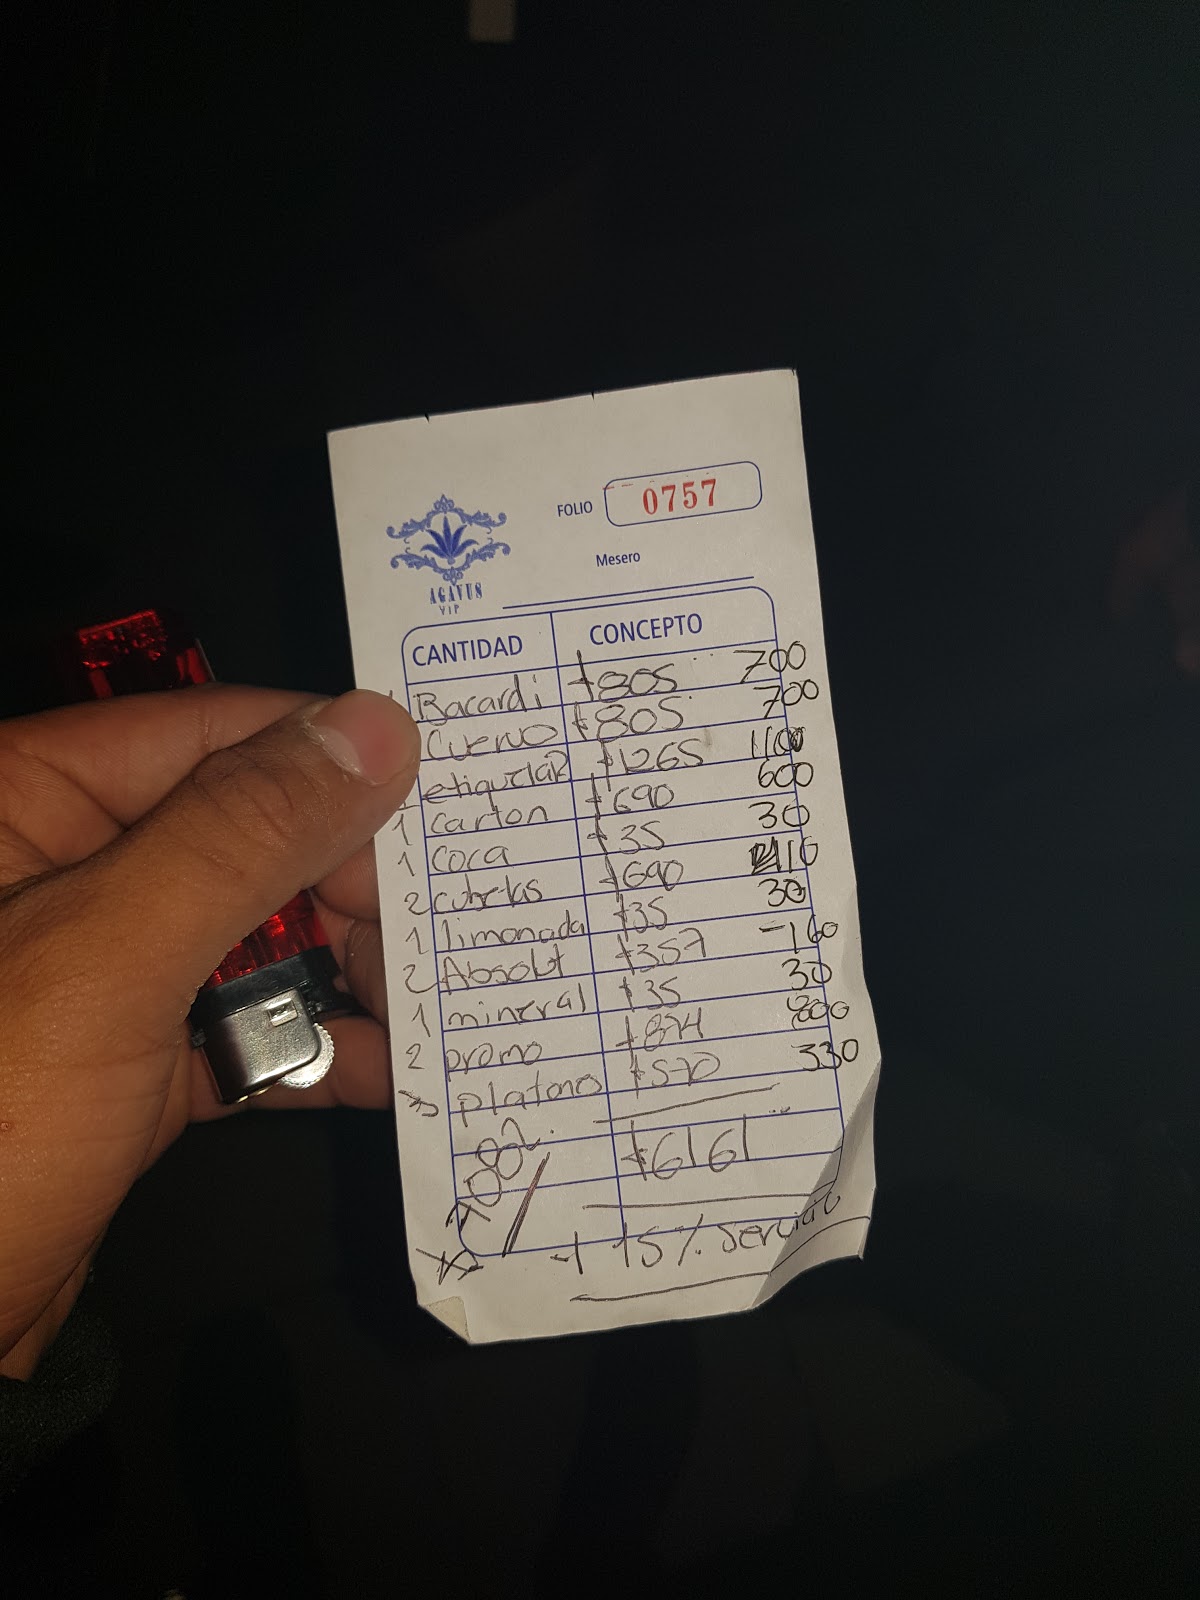 FOLIO 0757
Mesero
AGAVUS
VIP
CANTIDAD CONCEPTO
Bacardi $805 700
Cuervo $805 700
$1265 1100
1 carton $690 600
1 coca $35 30
2 cubetas $690
1 limonada $35 30
2 Absolut $357 -160
1 mineral $35 30
2 promo $874 800
3 platanos $570 330
$6161
+ 15% servicio